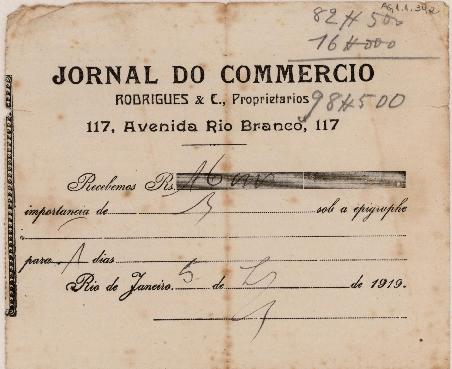 AG.1.1.39.2
82 # 500
16 # 000
98 # 500
JORNAL DO COMMERCIO
RODRIGUES & C., Proprietarios
117, Avenida Rio Branco, 117
Recebemos Rs. 16 000
importancia de sob a epigraphe
para 1 dias
Rio de Janeiro 5 de de 1919.